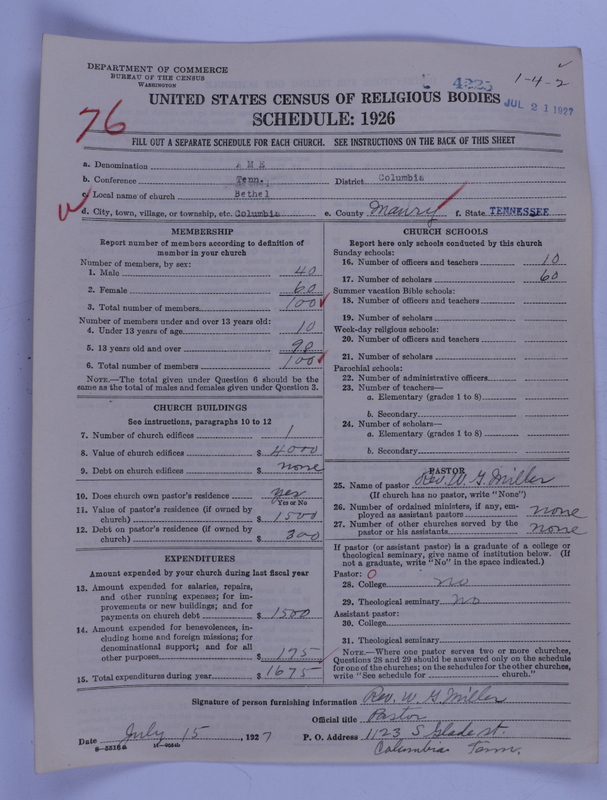 DEPARTMENT OF COMMERCE
BUREAU OF THE CENSUS
WASHINGTON
4225
1-4-2
JUL 21 1927
UNITED STATES CENSUS OF RELIGIOUS BODIES
SCHEDULE: 1926
76
FILL OUT A SEPARATE SCHEDULE FOR EACH CHURCH. SEE INSTRUCTIONS ON THE BACK OF THIS SHEET
a. Denomination A M E
b. Conference Tenn. District Columbia
c. Local name of church Bethel
d. City, town, village, or township, etc. Columbia e. County Maury f. State TENNESSEE
MEMBERSHIP
Report number of members according to definition of
member in your church
Number of members, by sex:
1. Male 40
2. Female 60
3. Total number of members 100
Number of members under and over 13 years old:
4. Under 13 years of age 10
5. 13 years old and over 90
6. Total number of members 100
NOTE.—The total given under Question 6 should be the
same as the total of males and females given under Question 3.
CHURCH BUILDINGS
See instructions, paragraphs 10 to 12
7. Number of church edifices 1
8. Value of church edifices $ 4000
9. Debt on church edifices $ none
10. Does church own pastor's residence yes
Yes or No
11. Value of pastor's residence (if owned by
church) $ 1500
12. Debt on pastor's residence (if owned by
church) $ 300
EXPENDITURES
Amount expended by your church during last fiscal year
13. Amount expended for salaries, repairs,
and other running expenses; for im-
provements or new buildings; and for
payments on church debt $ 1500
14. Amount expended for benevolences, in-
cluding home and foreign missions; for
denominational support; and for all
other purposes $ 175
15. Total expenditures during year $ 1675
CHURCH SCHOOLS
Report here only schools conducted by this church
Sunday schools:
16. Number of officers and teachers 10
17. Number of scholars 60
Summer vacation Bible schools:
18. Number of officers and teachers
19. Number of scholars
Week-day religious schools:
20. Number of officers and teachers
21. Number of scholars
Parochial schools:
22. Number of administrative officers
23. Number of teachers—
a. Elementary (grades 1 to 8)
b. Secondary
24. Number of scholars—
a. Elementary (grades 1 to 8)
b. Secondary
PASTOR
25. Name of pastor Rev. W. G. Miller
(If church has no pastor, write "None")
26. Number of ordained ministers, if any, em-
ployed as assistant pastors none
27. Number of other churches served by the
pastor or his assistants none
If pastor (or assistant pastor) is a graduate of a college or
theological seminary, give name of institution below. (If
not a graduate, write "No" in the space indicated.)
Pastor: O
28. College no
29. Theological seminary no
Assistant pastor:
30. College
31. Theological seminary
NOTE.—Where one pastor serves two or more churches,
Questions 28 and 29 should be answered only on the schedule
for one of the churches; on the schedules for the other churches,
write "See schedule for church."
Signature of person furnishing information Rev. W. G. Miller
Official title Pastor
Date July 15, 1927 P. O. Address 1123 S Glade st.
8-5518a Columbia Tenn.